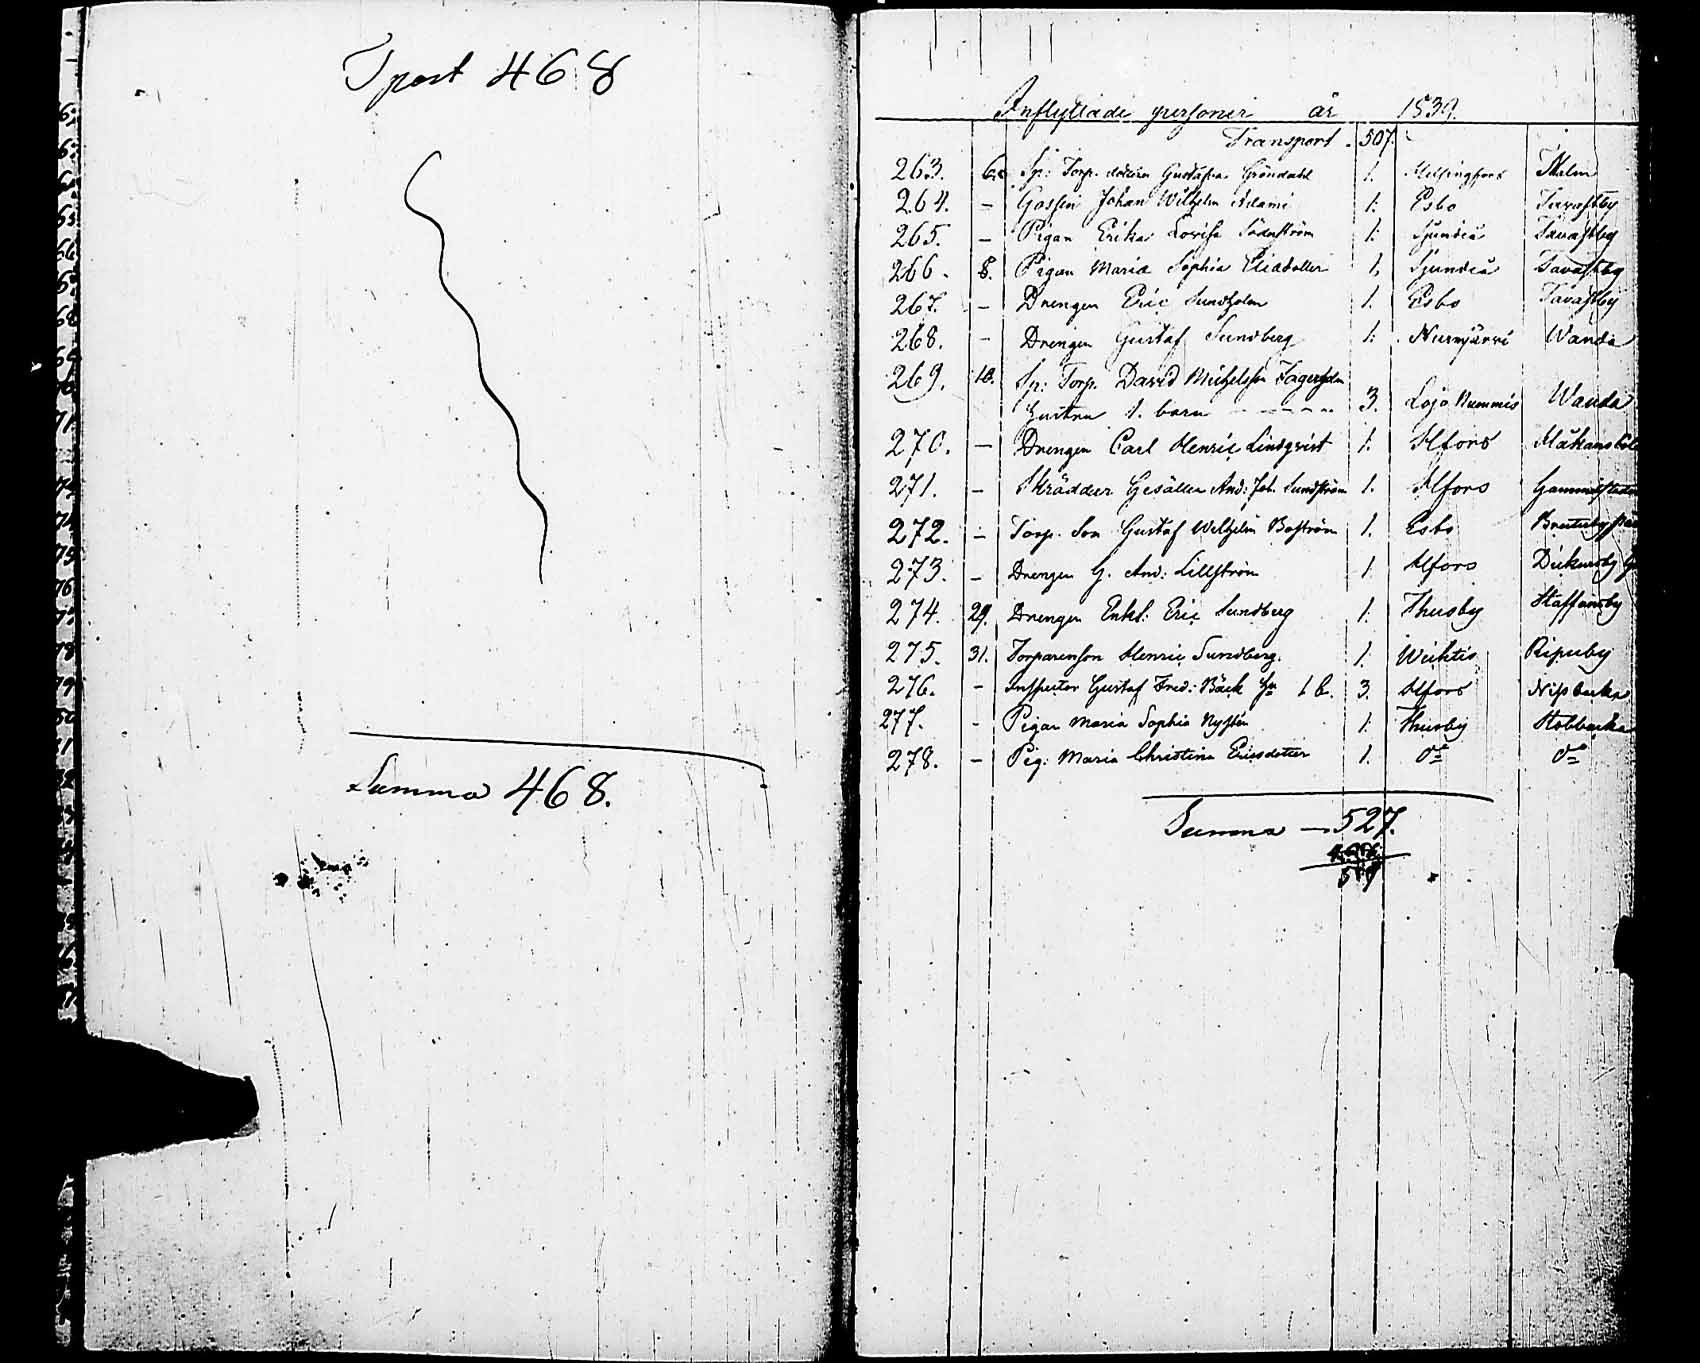 Tpost 468
Summa 468.
Inflyttade personer år 1839.
Transport. 507.
263. 6. Sp: Torp. dottren Gustafva Gröndahl 1. Helsingfors Malm
264. – Gossen Johan Wilhelm Adami 1. Esbo Tavastby
265. – Pigan Erika Lovisa Söderström 1. Sjundeå Tavastby
266. 8. Pigan Maria Sophia Eliædotter 1. Sjundeå Tavastby
267. – Drengen Eric Sundholm 1. Esbo Tavastby
268. – Drengen Gustaf Sundberg 1. Nurmijärvi Wanda
269. 10. Sp: Torp. David Michelsson
Hustru 1. barn 3. Lojo Nummis Wanda
270. – Drengen Carl Henric Lindqvist 1. Hfors Håkansböle
271. – Skräddar Gesällen And: Joh. Sundström 1. Hfors
272. – Torp. Son Gustaf Wilhelm Boström 1. Esbo
273. – Drengen G. And: Lillström 1. Hfors Dickursby
274. 29. Drengen Enkl: Eric Sundberg 1. Thusby Staffansby
275. 31. Torparenson Henric Sundberg. 1. Wichtis Ripuby
276. – Inspector Gustaf Fred: Bäck Hu 1 b. 3. Hfors Nissbacka
277. – Pigan Maria Sophia Nystén 1. Thusby Stobbacka
278. – Pig: Maria Christina Ericsdotter 1. do do
Summa – 527.